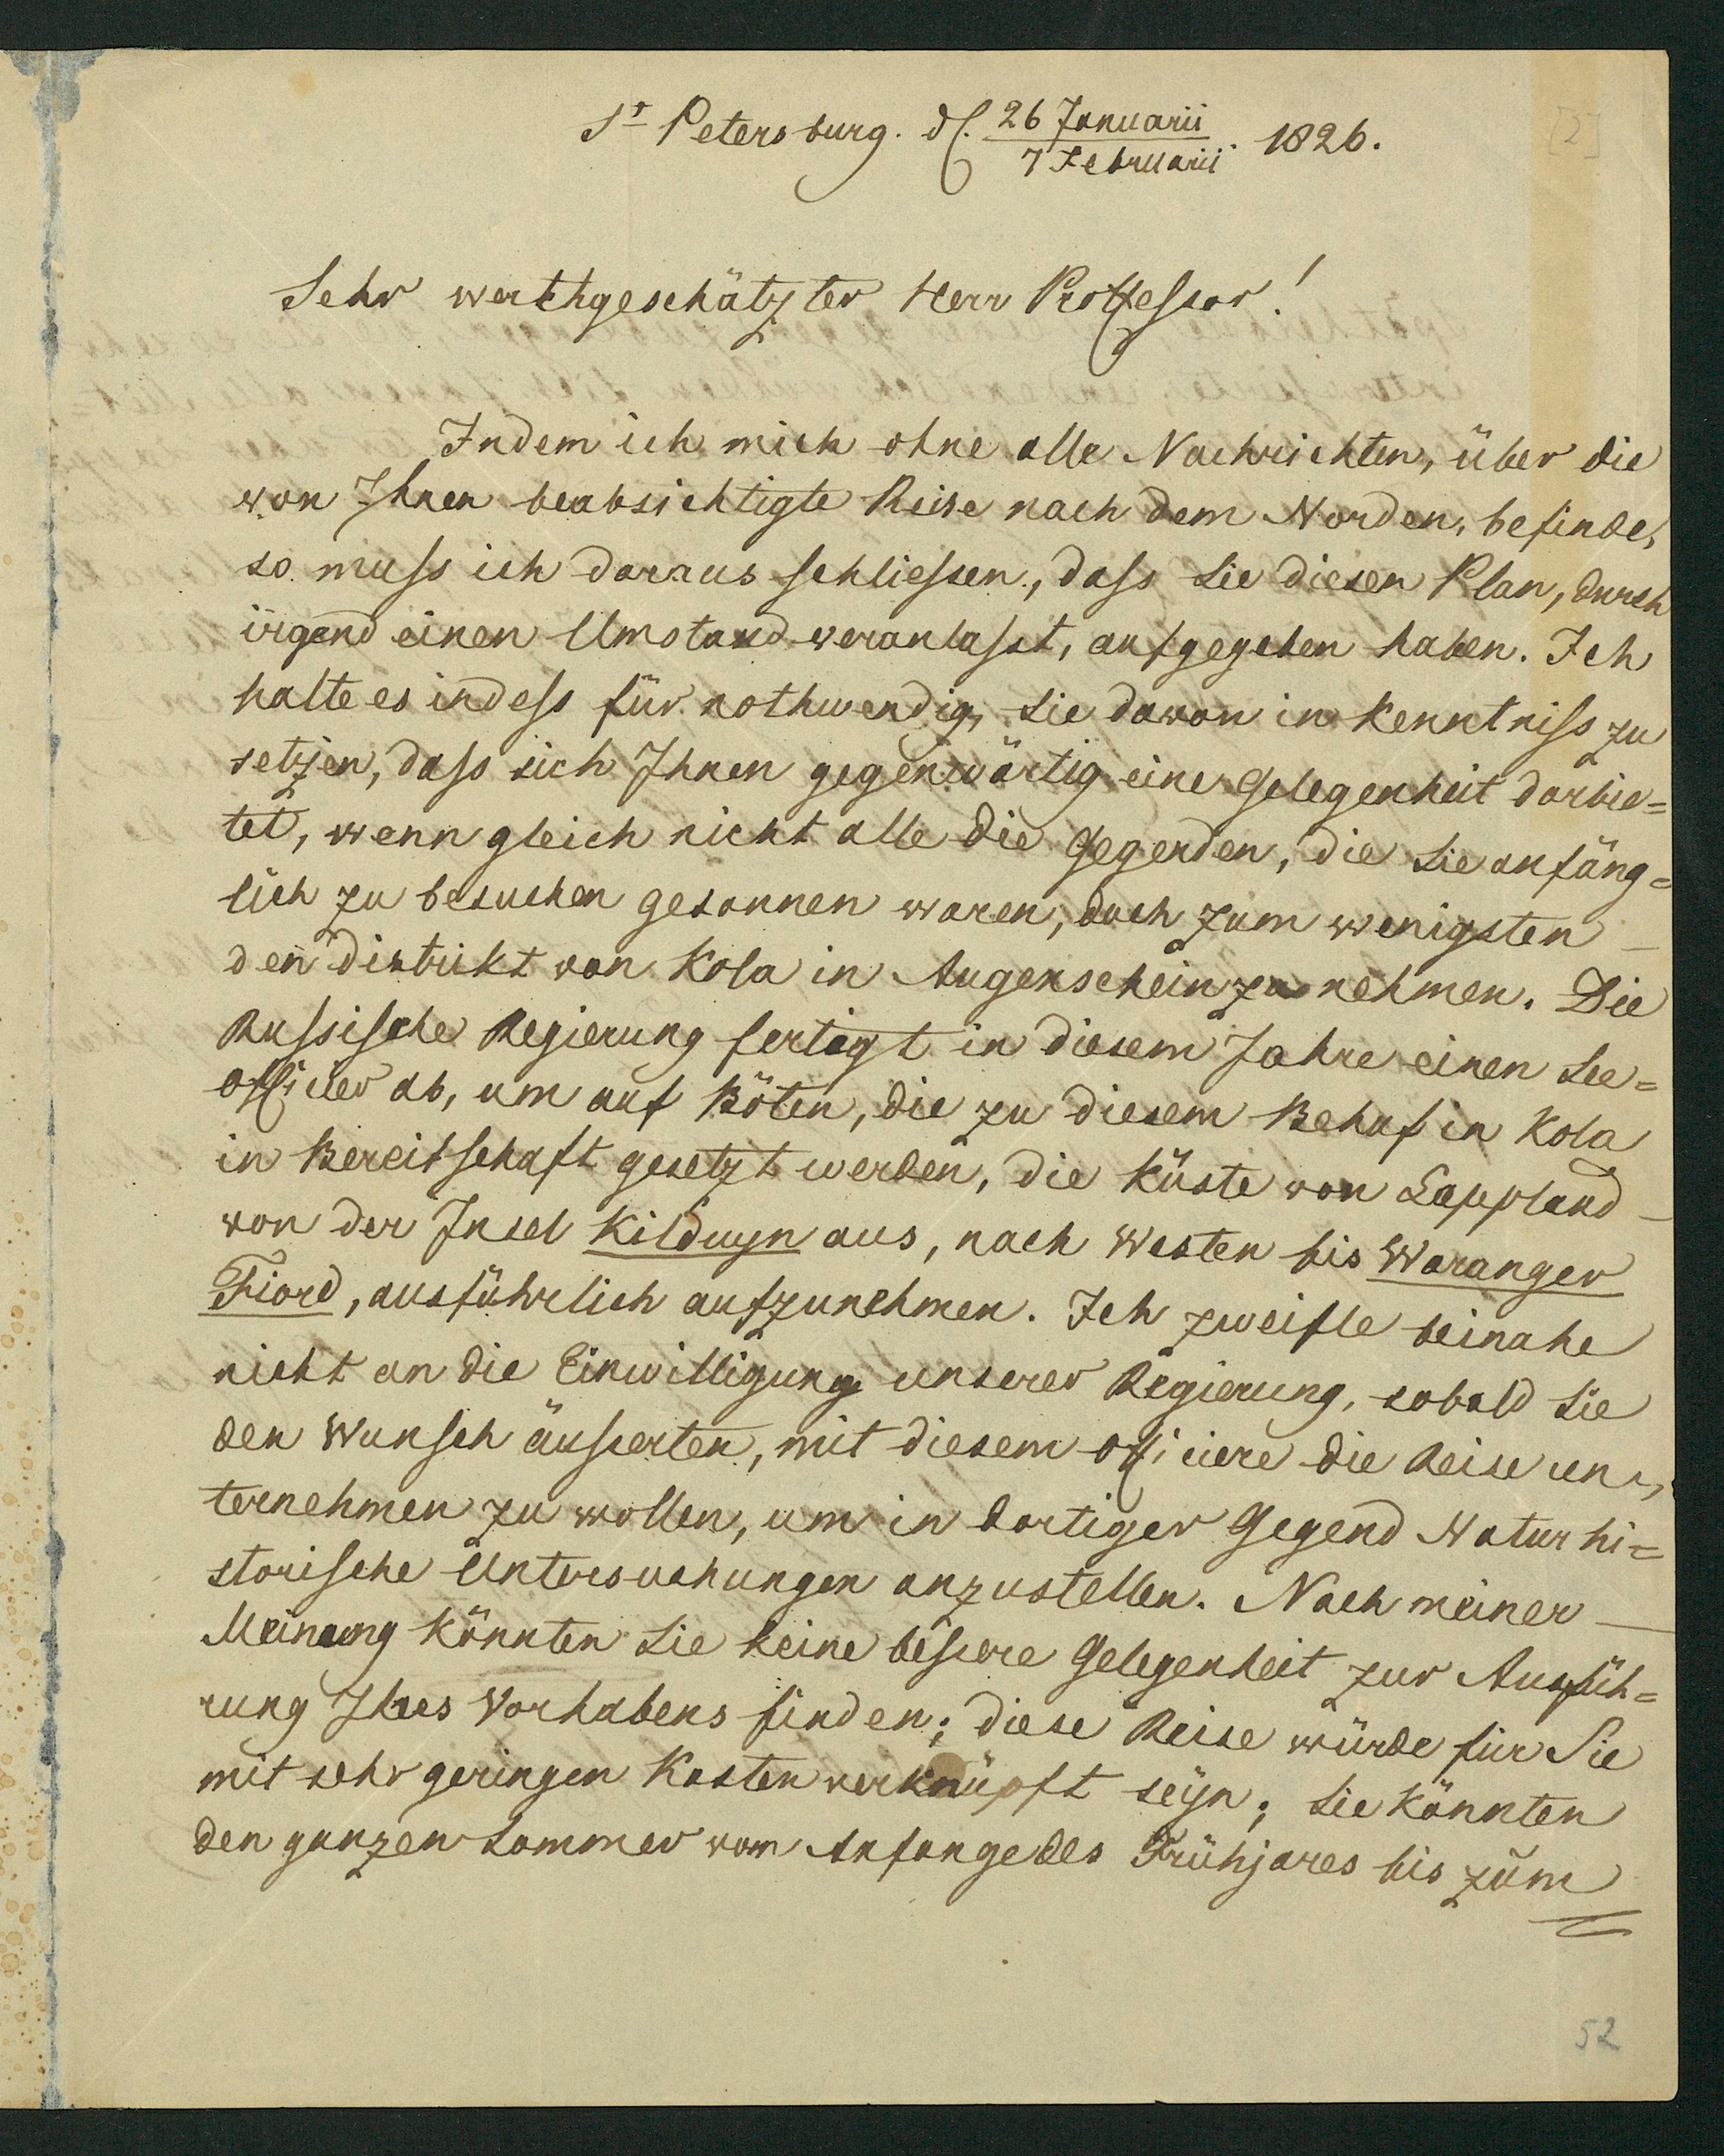 St Petersburg. d. 26 Januarii / 7 Februarii 1826.
[2]
Sehr werthgeschätzter Herr Proffessor!
Indem ich mich ohne alle Nachrichten, über die
von Ihnen beabsichtigte Reise nach dem Norden, befinde,
so muss ich daraus schliessen, dass Sie diesen Plan, durch
irgend einen Umstand veranlasst, aufgegeben haben. Ich
halte es indess für nothwendig, Sie davon in Kenntniss zu
setzen, dass sich Ihnen gegenwärtig eine Gelegenheit darbie=
tet, wenn gleich nicht alle die Gegenden, die Sie anfäng=
lich zu besuchen gesonnen waren, doch zum wenigsten
den distrikt von Kola in Augenschein zu nehmen. Die
Russische Regierung fertigt in diesem Jahre einen See=
officier ab, um auf Böten, die zu diesem Behuf in Kola
in Bereitschaft gesetzt werden, die Küste von Lappland
von der Insel Kilduyn aus, nach Westen bis Waranger
Fiord, ausführlich aufzunehmen. Ich zweifle beinahe
nicht an die Einwilligung unserer Regierung, sobald Sie
den Wunsch äusserten, mit diesem officiere die Reise un=
ternehmen zu wollen, um in dortiger Gegend Naturhi=
storische Untersuchungen anzustellen. Nach meiner
Meinung könnten Sie keine bessere Gelegenheit zur Ausfüh=
rung Ihres Vorhabens finden; diese Reise würde für Sie
mit sehr geringen Kosten verknüpft seyn; Sie könnten
den ganzen Sommer vom Anfange des Frühjares bis zum
52